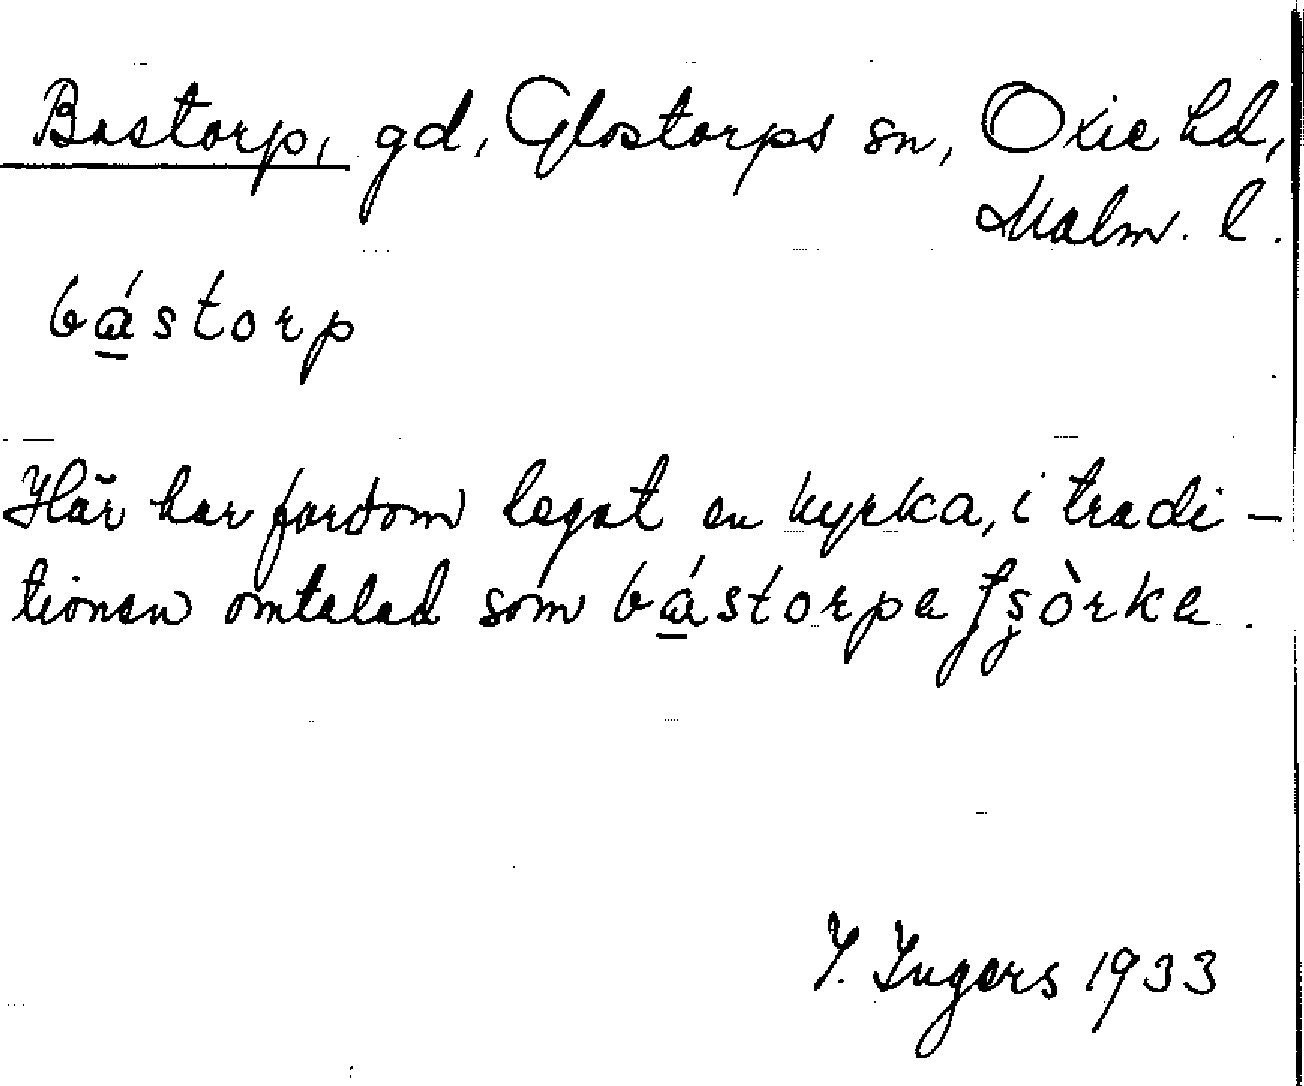 Bastorp, gd, Glostorps sn, Oxie hd,
Malm. l.
bástorp
Här har fordom legat en kyrka, i tradi-
tionen omtalad som bástorpa fşòrka.
I. Ingers 1933